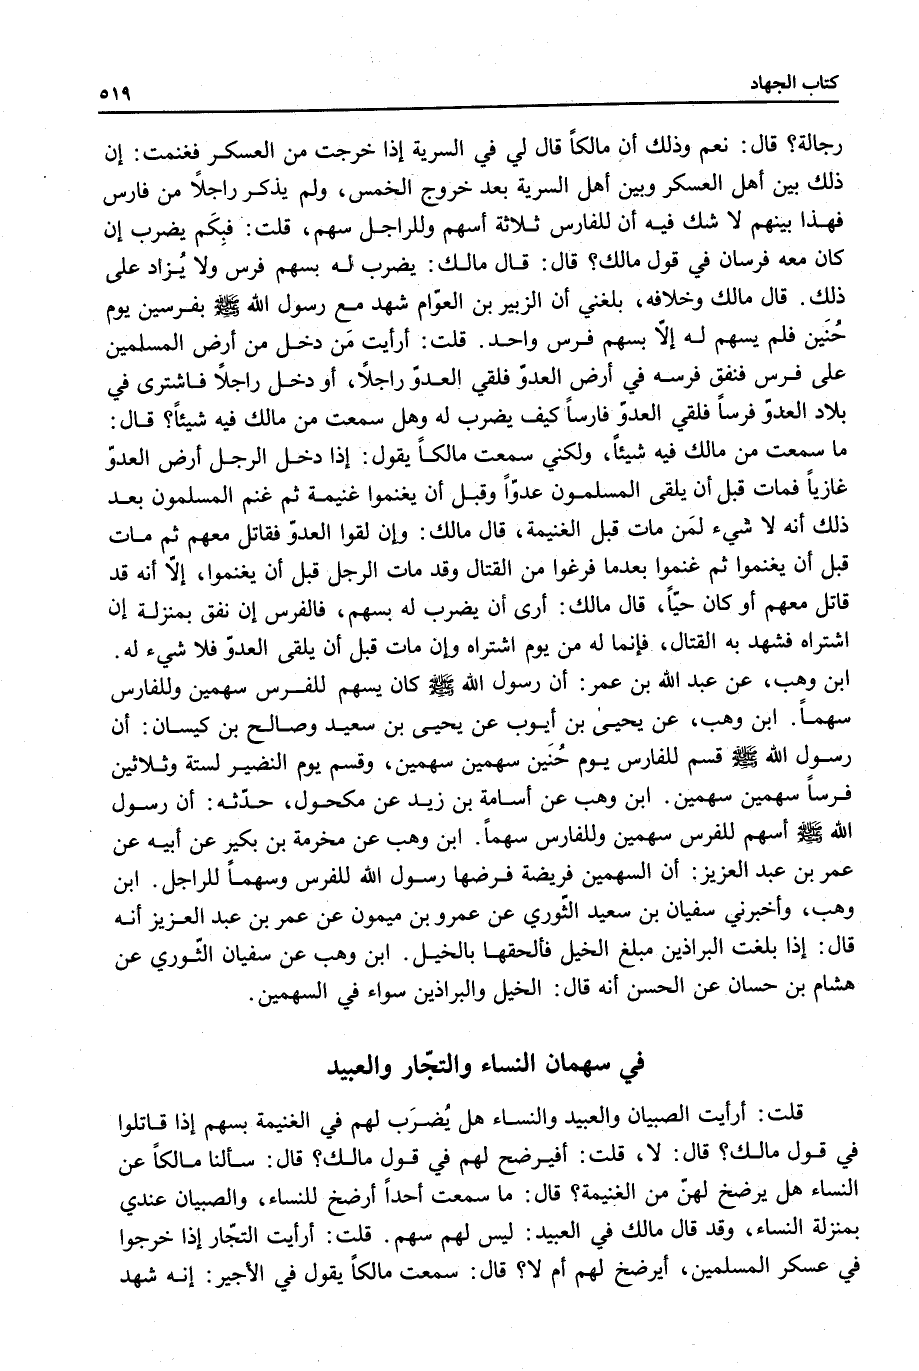 كتاب الجهاد ٥١٩
رجالة؟ قال: نعم وذلك أن مالكاً قال لي في السرية إذا خرجت من العسكر فغنمت: إن
ذلك بين أهل العسكر وبين أهل السرية بعد خروج الخمس، ولم يذكر راجلاً من فارس
فهذا بينهم لا شك فيه أن للفارس ثلاثة أسهم وللراجل سهم، قلت: فبِكَم يضرب إن
كان معه فرسان في قول مالك؟ قال: قال مالك: يضرب له بسهم فرس ولا يُزاد على
ذلك. قال مالك وخلافه، بلغني أن الزبير بن العوّام شهد مع رسول الله ﷺ بفرسين يوم
حُنَين فلم يسهم له إلاّ بسهم فرس واحد. قلت: أرأيت مَن دخل من أرض المسلمين
على فرس فنفق فرسه في أرض العدوّ فلقي العدوّ راجلاً، أو دخل راجلاً فاشترى في
بلاد العدوّ فرساً فلقي العدوّ فارساً كيف يضرب له وهل سمعت من مالك فيه شيئاً؟ قال:
ما سمعت من مالك فيه شيئاً، ولكني سمعت مالكاً يقول: إذا دخل الرجل أرض العدوّ
غازياً فمات قبل أن يلقى المسلمون عدوّاً وقبل أن يغنموا غنيمة ثم غنم المسلمون بعد
ذلك أنه لا شيء لمَن مات قبل الغنيمة، قال مالك: وإن لقوا العدوّ فقاتل معهم ثم مات
قبل أن يغنموا ثم غنموا بعدما فرغوا من القتال وقد مات الرجل قبل أن يغنموا، إلاّ أنه قد
قاتل معهم أو كان حيّاً، قال مالك: أرى أن يضرب له بسهم، فالفرس إن نفق بمنزلة إن
اشتراه فشهد به القتال، فإنما له من يوم اشتراه وإن مات قبل أن يلقى العدوّ فلا شيء له.
ابن وهب، عن عبد الله بن عمر: أن رسول الله ﷺ كان يسهم للفرس سهمين وللفارس
سهماً. ابن وهب، عن يحيىٰ بن أيوب عن يحيى بن سعيد وصالح بن كيسان: أن
رسول الله ﷺ قسم للفارس يوم حُنَين سهمين سهمين، وقسم يوم النضير لستة وثلاثين
فرساً سهمين سهمين. ابن وهب عن أسامة بن زيد عن مكحول، حدّثه: أن رسول
الله ﷺ أسهم للفرس سهمين وللفارس سهماً. ابن وهب عن مخرمة بن بكير عن أبيه عن
عمر بن عبد العزيز: أن السهمين فريضة فرضها رسول الله للفرس وسهماً للراجل. ابن
وهب، وأخبرني سفيان بن سعيد الثّوري عن عمرو بن ميمون عن عمر بن عبد العزيز أنه
قال: إذا بلغت البراذين مبلغ الخيل فألحقها بالخيل. ابن وهب عن سفيان الثّوري عن
هشام بن حسان عن الحسن أنه قال: الخيل والبراذين سواء في السهمين.
في سهمان النساء والتجّار والعبيد
قلت: أرأيت الصبيان والعبيد والنساء هل يُضرَب لهم في الغنيمة بسهم إذا قاتلوا
في قول مالك؟ قال: لا، قلت: أفيرضح لهم في قول مالك؟ قال: سألنا مالكاً عن
النساء هل يرضخ لهنّ من الغنيمة؟ قال: ما سمعت أحداً أرضخ للنساء، والصبيان عندي
بمنزلة النساء، وقد قال مالك في العبيد: ليس لهم سهم. قلت: أرأيت التجّار إذا خرجوا
في عسكر المسلمين، أيرضخ لهم أم لا؟ قال: سمعت مالكاً يقول في الأجير: إنه شهد